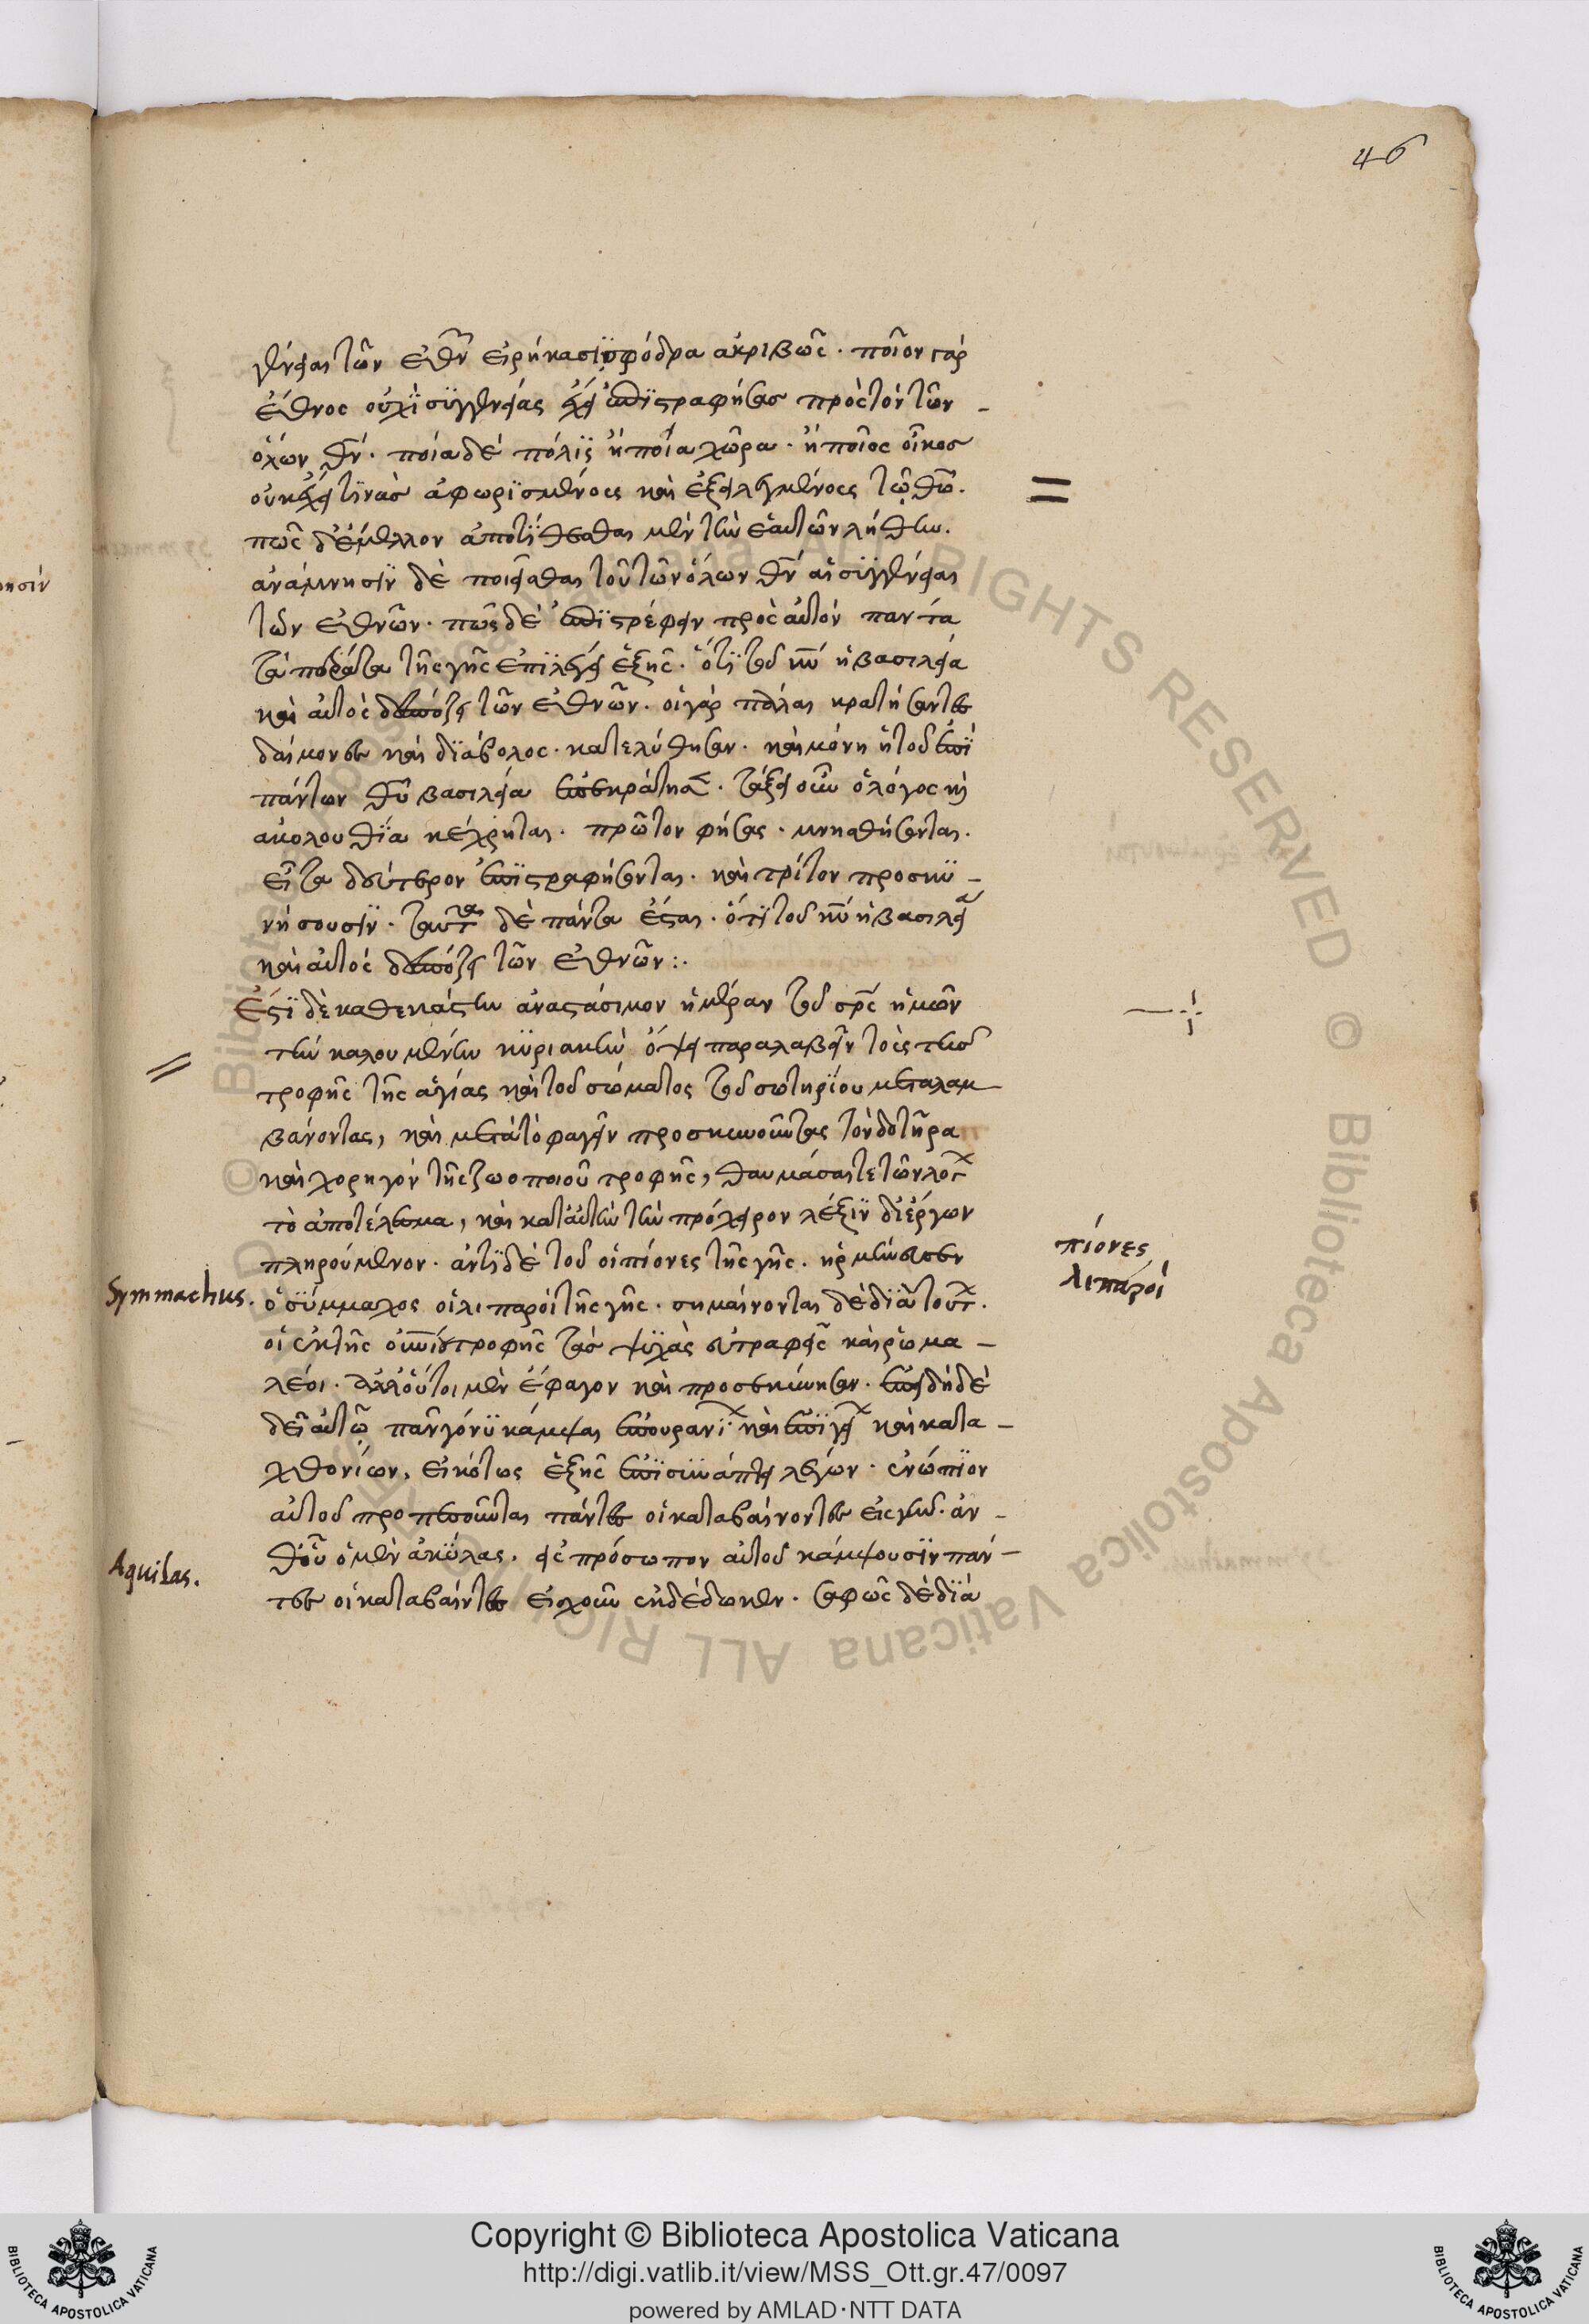 46
γένειαι τῶν ἐθνῶν εἰρήκασι σφόδρα ἀκριβῶς. ποῖον γάρ
ἔθνος οὐχὶ συγγενείας ἔχει ἐπιστραφήσας πρὸς τὸν τῶν
ὅλων θν. ποία δὲ πόλις ἢ ποία χώρα. ἢ ποῖος οἶκος
οὐκ ἔχει τινὰς ἀφωρισμένους καὶ ἐξειλεγμένους τῷ θῶ.
πῶς δὲ ἔμελλον ἀποτίθεσθαι μὲν τὴν ἑαυτῶν λήθην.
ἀνάμνησιν δὲ ποιεῖσθαι τοῦ τῶν ὅλων θυ αἱ συγγένειαι
τῶν ἐθνῶν. πῶς δὲ ἐπιστρέφειν πρὸς αὐτὸν παντα
τὰ πέρατα τῆς γῆς ἐπιλέγει ἑξῆς. ὅτι τοῦ κυ ἡ βασιλεία
καὶ αὐτὸς δεσπόζει τῶν ἐθνῶν. οἱ γὰρ πάλαι κρατήσαντες
δαίμονες καὶ διάβολος. κατελύθησαν. καὶ μόνη ἡ τοῦ ἐπὶ
πάντων θυ βασιλεία ἐπεκράτησε. τάξει οὖν ὁ λόγος καὶ
ἀκολουθία κέχρηται. πρῶτον φήσας. μνησθήσονται.
εἶτα δεύτερον ἐπιστραφήσονται. καὶ τρίτον προσκυ-
νήσουσιν. ταῦτα δὲ πάντα ἔσται. ὅτι τοῦ κυ ἡ βασιλεία
καὶ αὐτὸς δεσπόζει τῶν ἐθνῶν:.
Ἔστι δὲ καθ' ἑκάστην ἀναστάσιμον ἡμέραν τοῦ σρς ἡμῶν
τὴν καλουμένην κυριακὴν ὄψει παραλαβεῖν τοὺς τῆς
τροφῆς τῆς ἁγίας καὶ τοῦ σώματος τοῦ σωτηρίου μεταλαμ-
βάνοντας, καὶ μετὰ τὸ φαγεῖν προσκυνοῦντας τὸν δοτῆρα
καὶ χορηγὸν τῆς ζωοποιοῦ τροφῆς, θαυμάσαι τε τῶν λόγ
τὸ ἀποτέλεσμα, καὶ κατ' αὐτὴν τὴν πρόχειρον λέξιν δι' ἔργων
πληρούμενον. ἀντὶ δὲ τοῦ οἱ πίονες τῆς γῆς. ἡρμήνευσεν
ὁ σύμμαχος οἱ λιπαροὶ τῆς γῆς. σημαίνονται δὲ διὰ τούτ.
οἱ ἐκ τῆς τροφῆς τὰς ψυχὰς εὐτραφεῖς καὶ ῥωμα-
λέοι. ἀλλ' οὗτοι μὲν ἔφαγον καὶ προσεκύνησαν. ἐπειδὴ δὲ
δεῖ αὐτῷ πᾶν γόνυ κάμψαι ἐπουρανί καὶ ἐπιγεί καὶ κατα-
χθονίων, εἰκότως ἑξῆς ἐπισυνάπτει λέγων. ἐνώπιον
αὐτοῦ προπεσοῦνται πάντες οἱ καταβαίνοντες εἰς γῆν. ἀν-
θ' οὗ ὁ μὲν ἀκύλας. εἰς πρόσωπον αὐτοῦ κάμψουσιν πάν-
τες οἱ καταβαίντες εἰς χοῦν ἐκδέδωκεν. σαφῶς δὲ διὰ
Symmachus.
Aquilas.
πίονες
λιπαροί
Copyright © Biblioteca Apostolica Vaticana
http://digi.vatlib.it/view/MSS_Ott.gr.47/0097
powered by AMLAD·NTT DATA